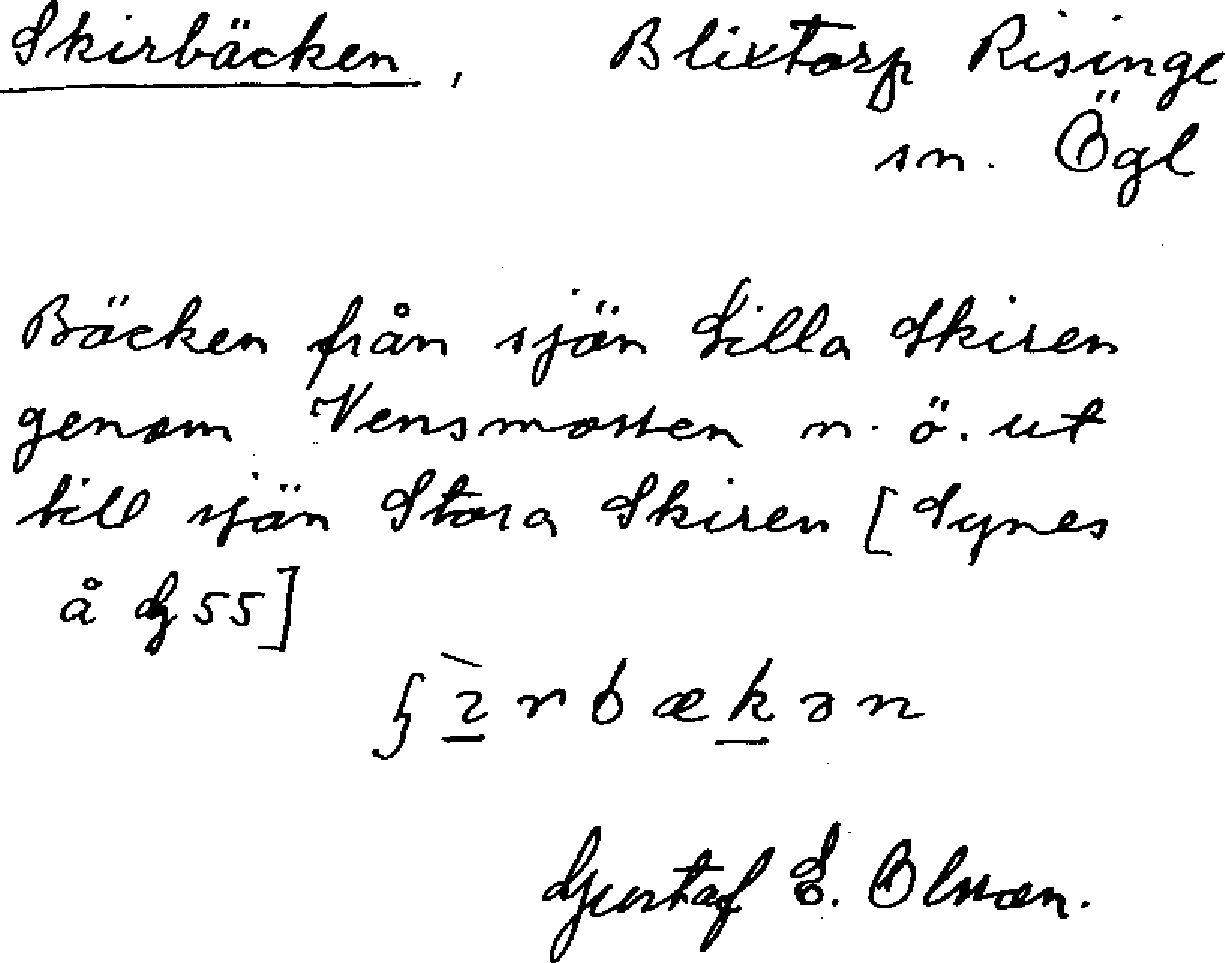 Skirbäcken, Blixtorp Risinge
sn. Ögl
Bäcken från sjön Lilla Skiren
genom Vensmossen n. ö. ut
till sjön Stora Skiren [Synes
å G 55]
Gustaf E. Olsson.